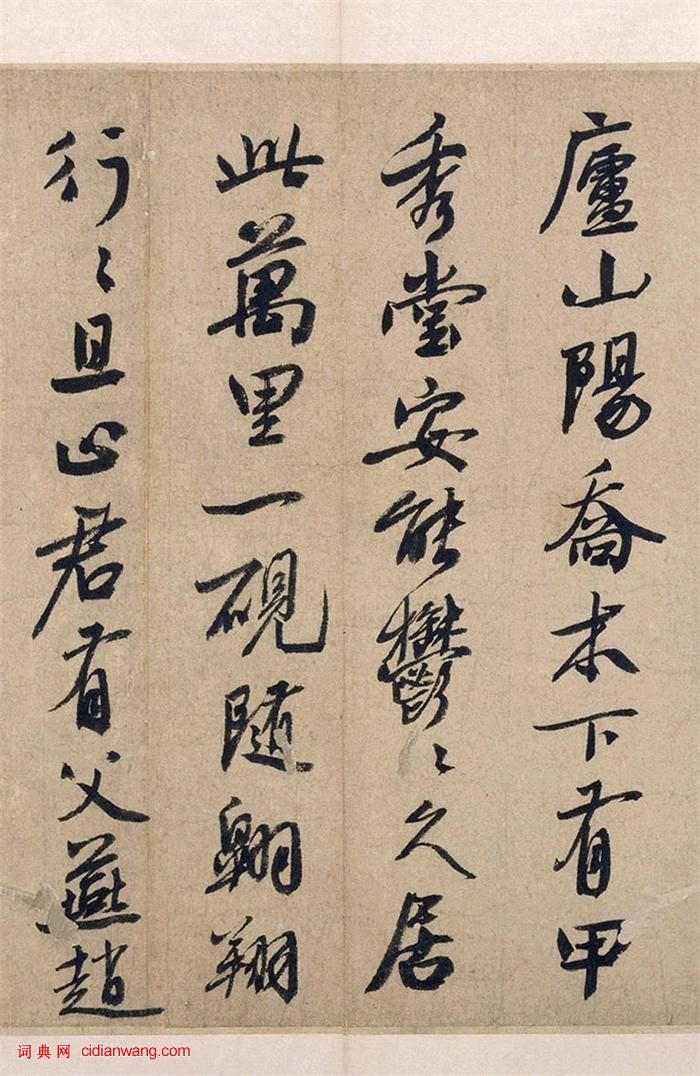 廬山陽喬木下有甲
秀堂安能鬱〻久居
此萬里一硯隨翱翔
行〻且止君有父燕趙
词典网 cidianwang.com